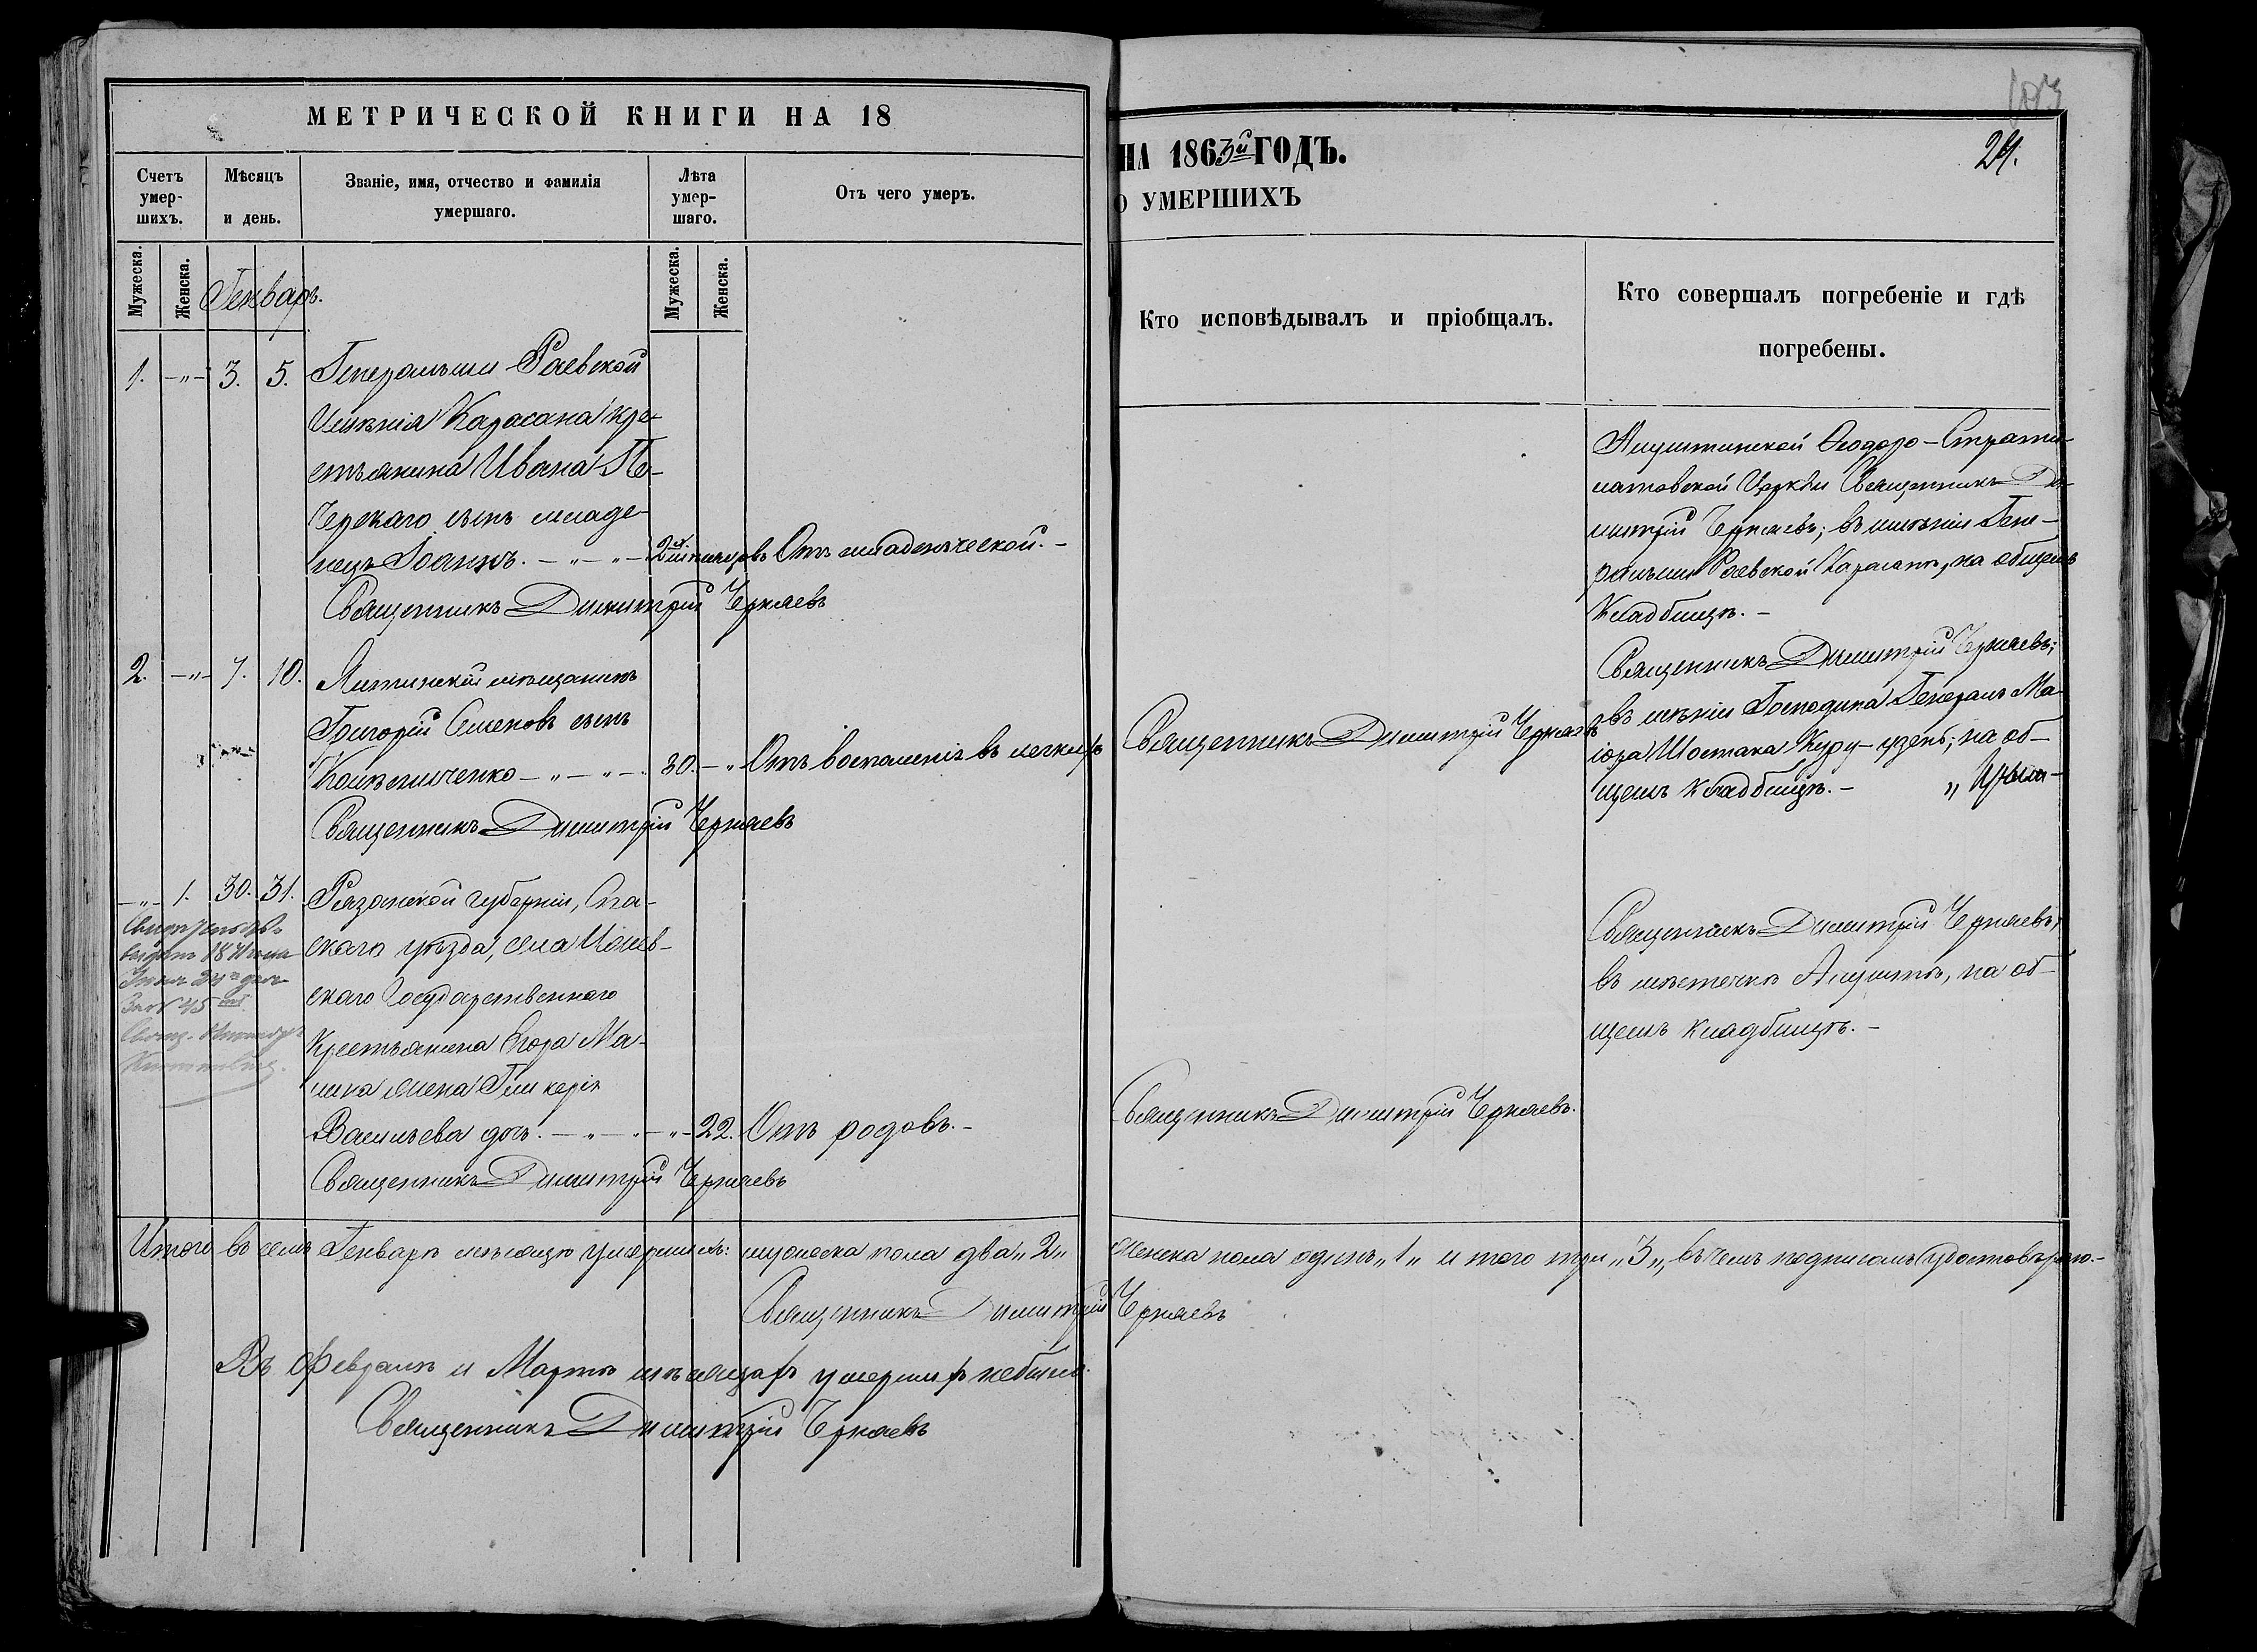 МЕТРИЧЕСКОЙ КНИГИ НА 18
Счетъ умер-шихъ.
Мѣсяцъ и день.
Званіе, имя, отчество и фамилія умершаго.
Лѣта умер-шаго.
Отъ чего умеръ.
Мужеска.
Женска.
Генварь.
Мужеска.
Женска.
1. —„— 3. 5. Генеральши Раевской
Имѣнія Карасана кре-
стьянина Ивана Пе-
черскаго сынъ младе-
нецъ Іоаннъ. —„—„— 2хъ мѣсяцовъ Отъ младенческой. —
Священникъ Димитрій Черняевъ
2. —„— 7. 10. Ялтинскій мѣщанинъ
Григорій Семеновъ сынъ
—„—„— 30. —„ Отъ воспаленія въ легкихъ
Священникъ Димитрій Черняевъ
—„— 1. 30. 31. Рязанской Губерніи, Спа-
скаго уѣзда, села
скаго Государственнаго
Крестьянина Егора Ма-
жена Гликерія
Васильева дочь. —„—„—„— 22. Отъ родовъ. —
Священникъ Димитрій Черняевъ
Итого въ семъ Генварѣ мѣсяцѣ умершихъ: мужеска пола два „2„
Священникъ Димитрій
Въ Февралѣ и Мартѣ мѣсяцахъ умершихъ небыло.
Священникъ Димитрій Черняевъ
103
НА 1863й ГОДЪ.
24.
О УМЕРШИХЪ
Кто исповѣдывалъ и пріобщалъ.
Кто совершалъ погребеніе и гдѣ
погребены.
Алуштинской Ѳеодоро-Страти-
латовской Церкви Священникъ Ди-
митрій Черняевъ; въ имѣніи Гене-
ральши Раевской Карасанъ, на общемъ
Кладбищѣ. —
Священникъ Димитрій Черняевъ;
Священникъ Димитрій Черняевъ
въ имѣніи Господина Генералъ Ма-
іора Шостака Куру-узень; на об-
щемъ кладбищѣ. —
Священникъ Димитрій Черняевъ;
въ мѣстечкѣ Алуштѣ, на об-
щемъ кладбищѣ. —
Священникъ Димитрій Черняевъ.
женска пола одинъ „1„ и того три „3„, въ чемъ подписомъ удостовѣряю. —
Черняевъ